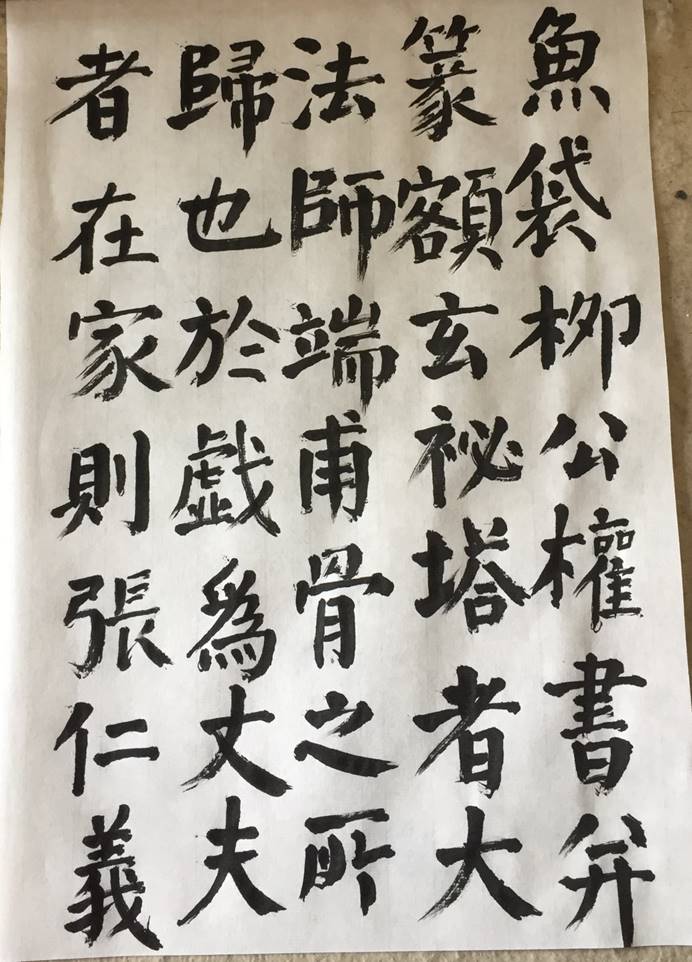 魚袋柳公權書并
篆額玄祕塔者大
法師端甫骨之所
歸也於戲爲丈夫
者在家則張仁義